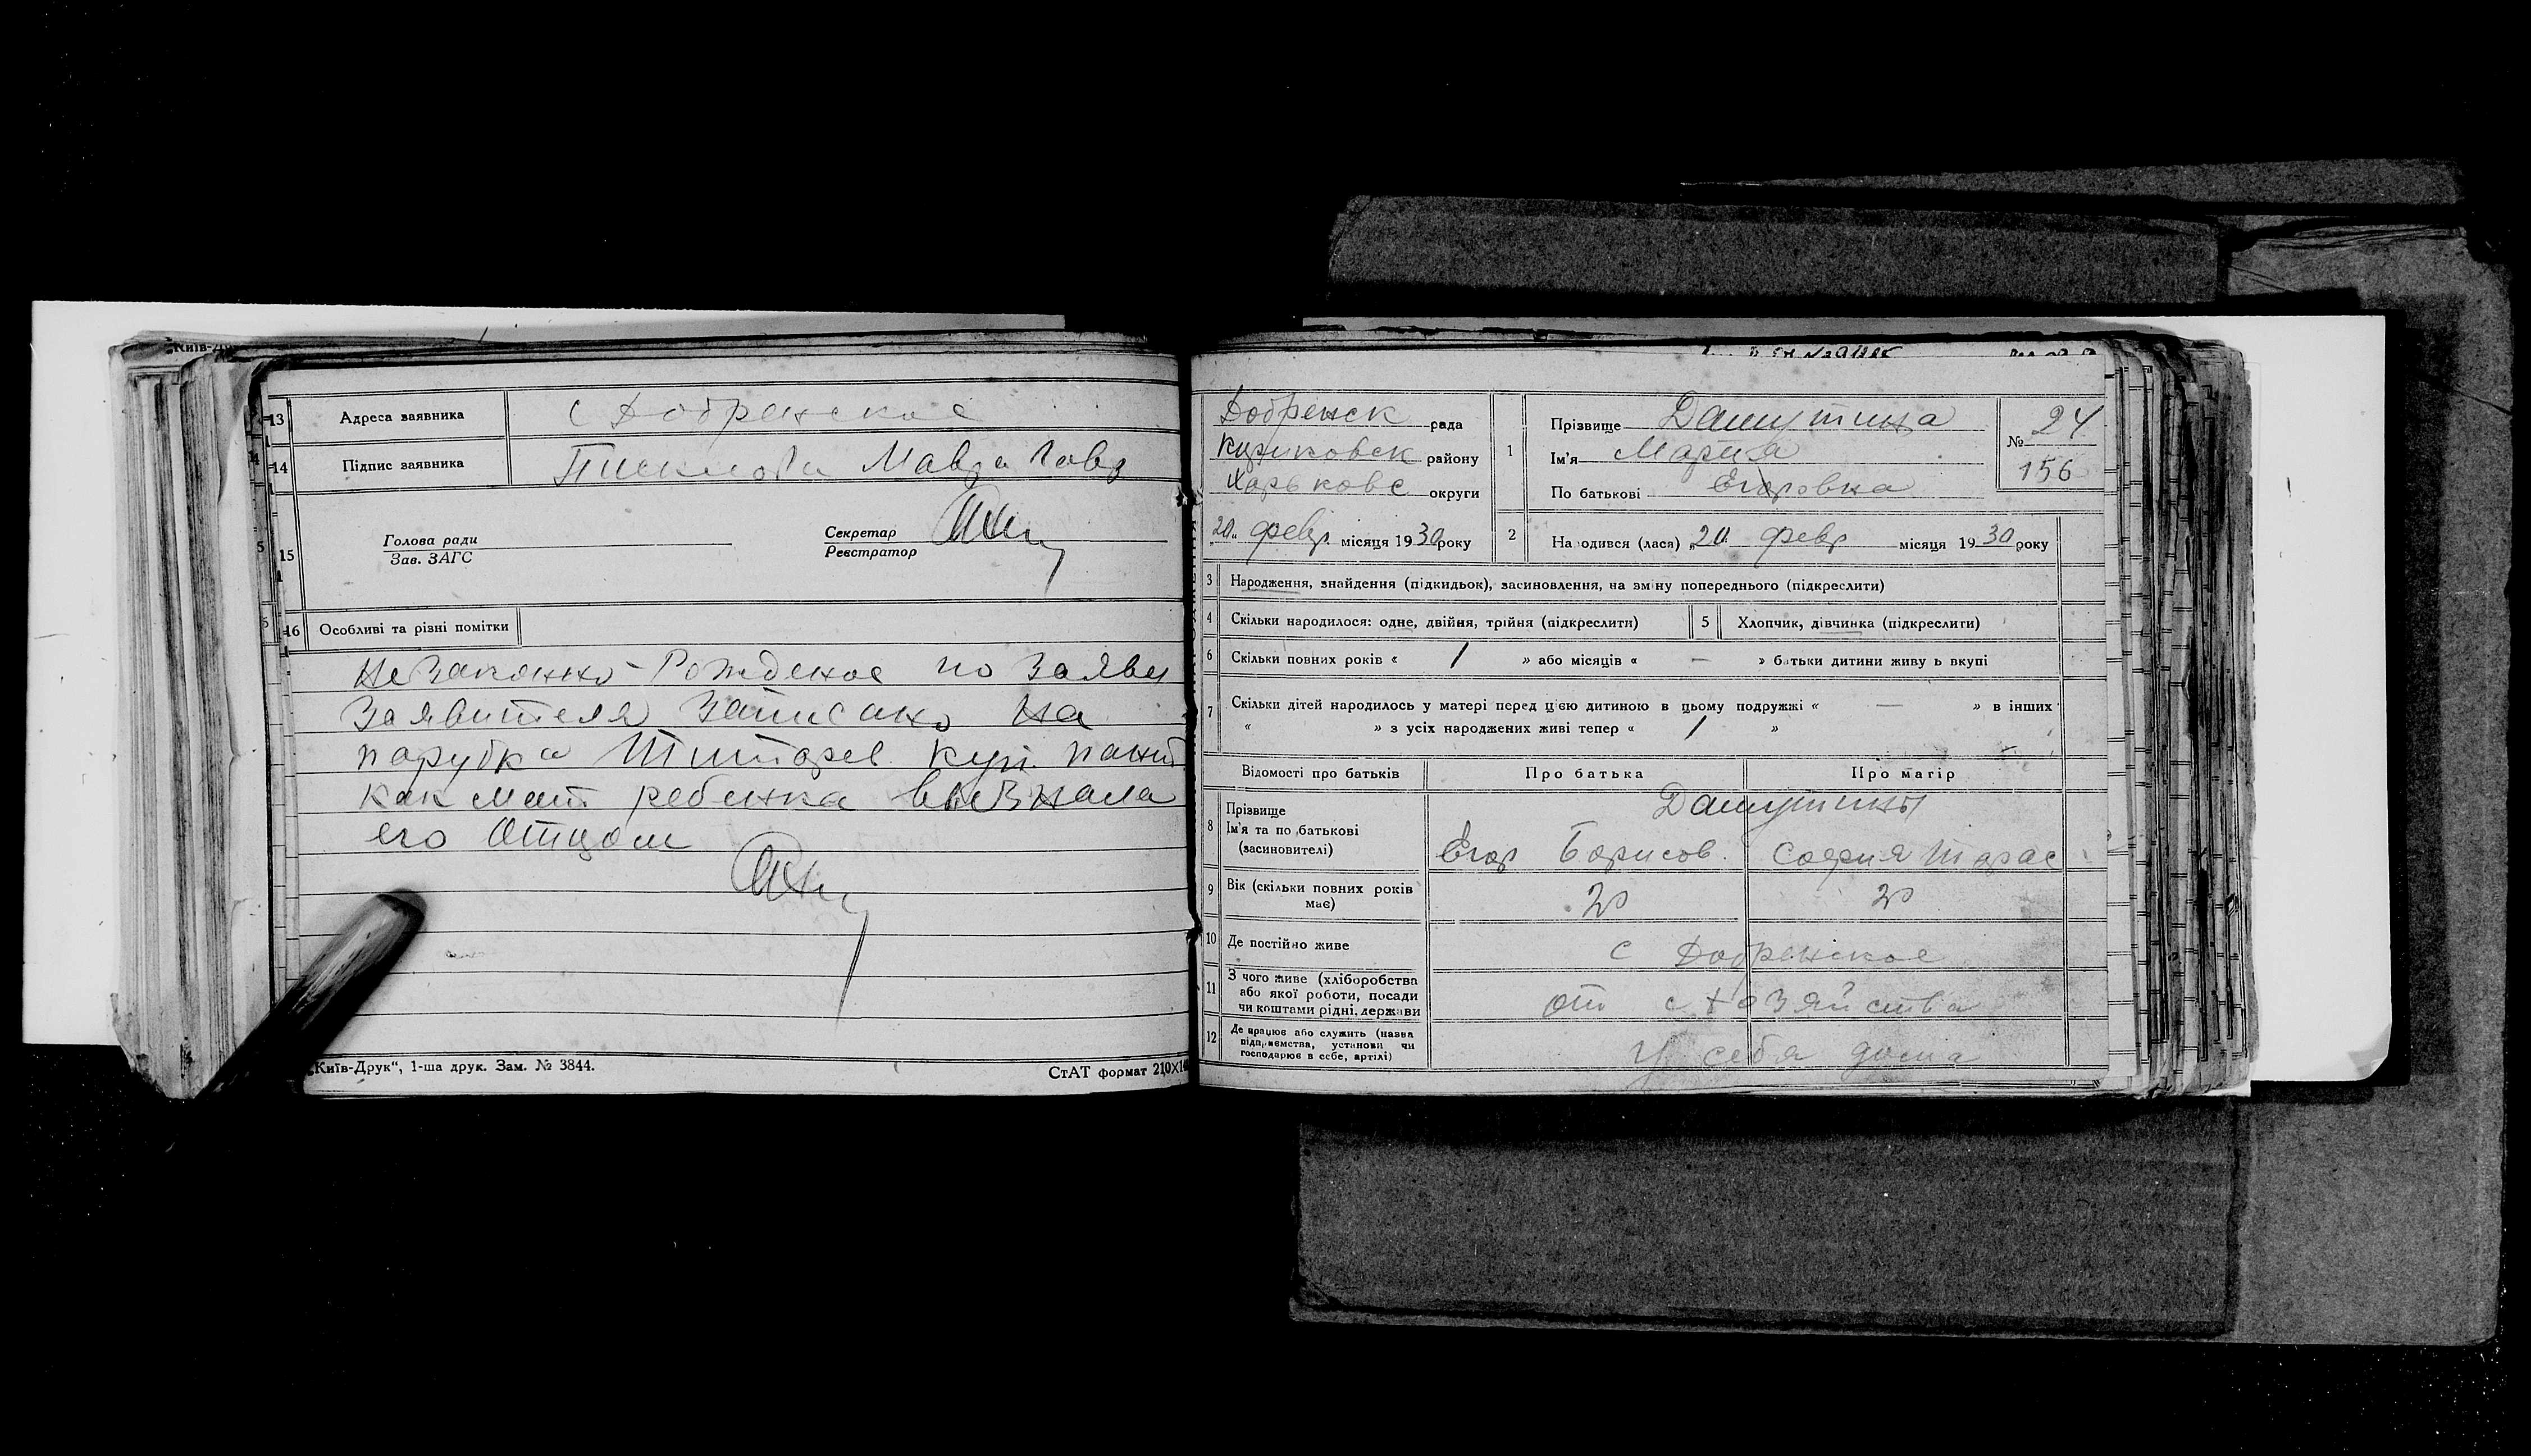 13 Адреса заявника с Добренское
14 Підпис заявника Мавра Гавр
15 Голова ради
Зав. ЗАГС
Секретар
Реєстратор
16 Особливі та різні помітки
Незаконно-Рожденое по заяви
Заявителя Записано на
парубка
как мат ребенка вызнала
его Отцом
„Київ-Друк“, 1-ша друк. Зам. № 3844.
СтАТ формат 210×14
Добренск рада
района району
Харьковс округи
„20„ февр. місяця 1930 року
1 Прізвище Дашутина
Ім'я Мария
По батькові Егоровна
№ 24
156
2 Народився (лася) „20„ февр місяця 1930 року
3 Народження, знайдення (підкидьок), засиновлення, на зміну попереднього (підкреслити)
4 Скільки народилося: одне, двійня, трійня (підкреслити)
5 Хлопчик, дівчинка (підкреслити)
6 Скільки повних років « 1 » або місяців « — » батьки дитини живу ь вкупі
7 Скільки дітей народилось у матері перед цією дитиною в цьому подружжі « — » в інших
« » з усіх народжених живі тепер « 1 »
Відомості про батьків Про батька Про матір
8 Прізвище
Ім'я та по батькові
(засиновителі)
Дашутины
Егор Борисов. София Тарас
9 Вік (скільки повних років має) 20 20
10 Де постійно живе с Добренское
11 З чого живе (хліборобства
або якої роботи, посади
чи коштами рідні, держави
от с хозяйства
12 Де працює або служить (назва
підприємства, установи чи
господарює в себе, артілі)
У себя дома